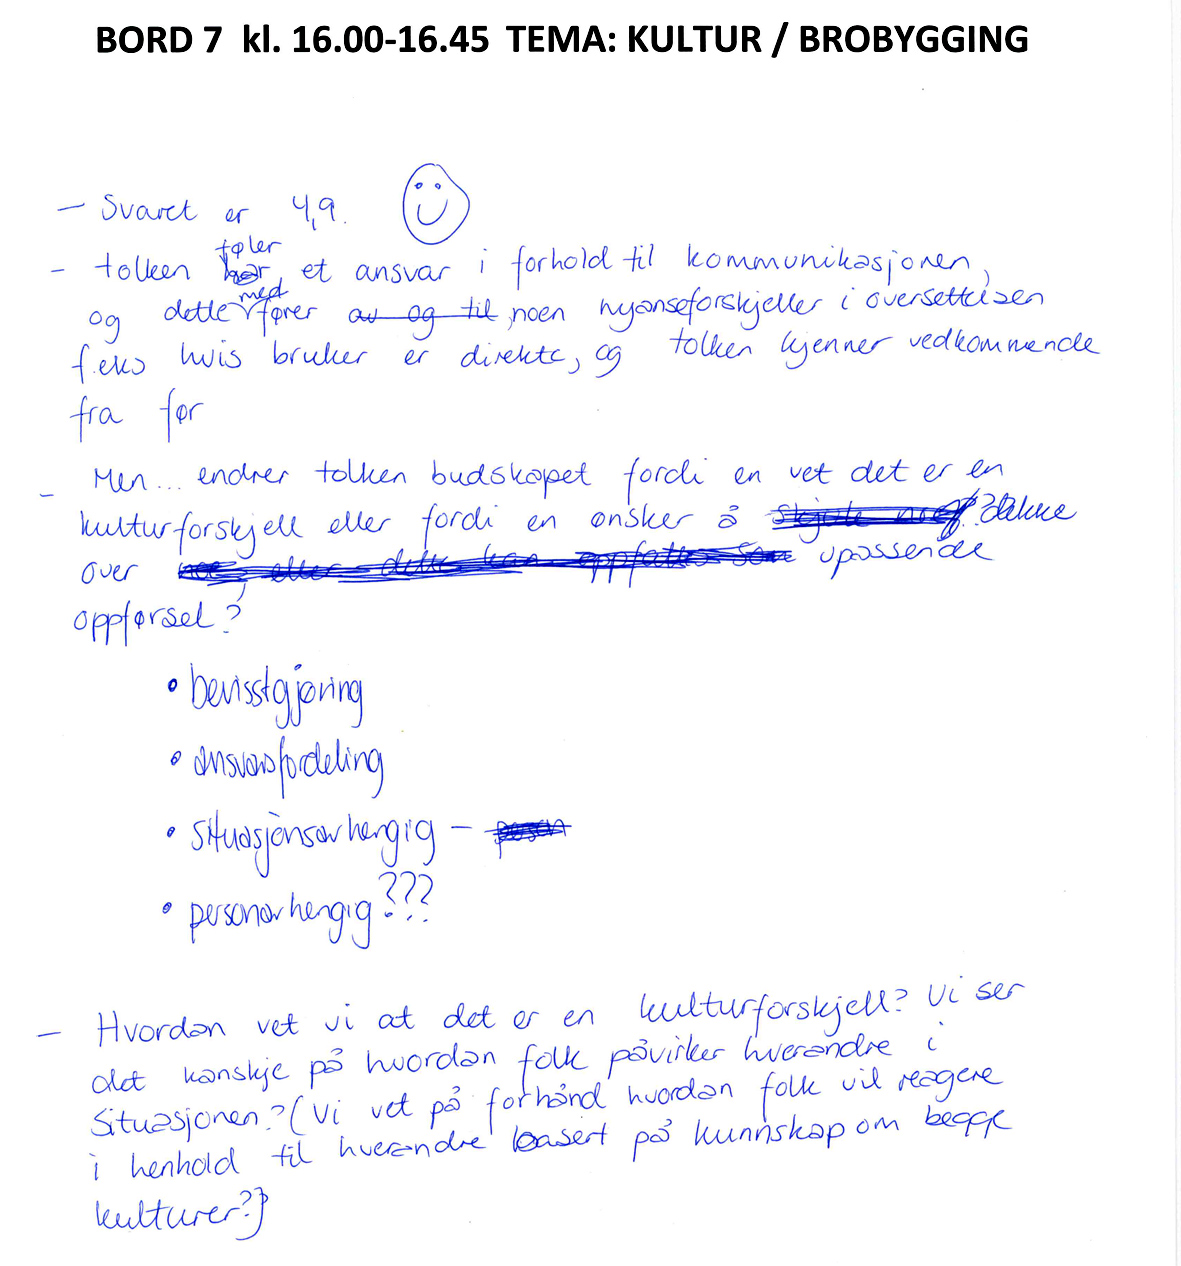 BORD 7 kl. 16.00-16.45 TEMA: KULTUR / BROBYGGING
- Svaret er 4,9.
føler
- tolken har, et ansvar i forhold til kommunikasjonen,
med
og dette fører av og til, noen nyanseforskjeller i oversettelsen
f.eks hvis bruker er direkte, og tolken kjenner vedkommende
fra før
- Men... endrer tolken budskapet fordi en vet det er en
kulturforskjell eller fordi en ønsker å dekke
over eller dette kan oppfattes som upassende
oppførsel?
• bevisstgjøring
• ansvarsfordeling
• situasjonsavhengig -
• personavhengig???
- Hvordan vet vi at det er en kulturforskjell? Vi ser
det kanskje på hvordan folk påvirker hverandre i
situasjonen? (Vi vet på forhånd hvordan folk vil reagere
i henhold til hverandre basert på kunnskap om begge
kulturer?)